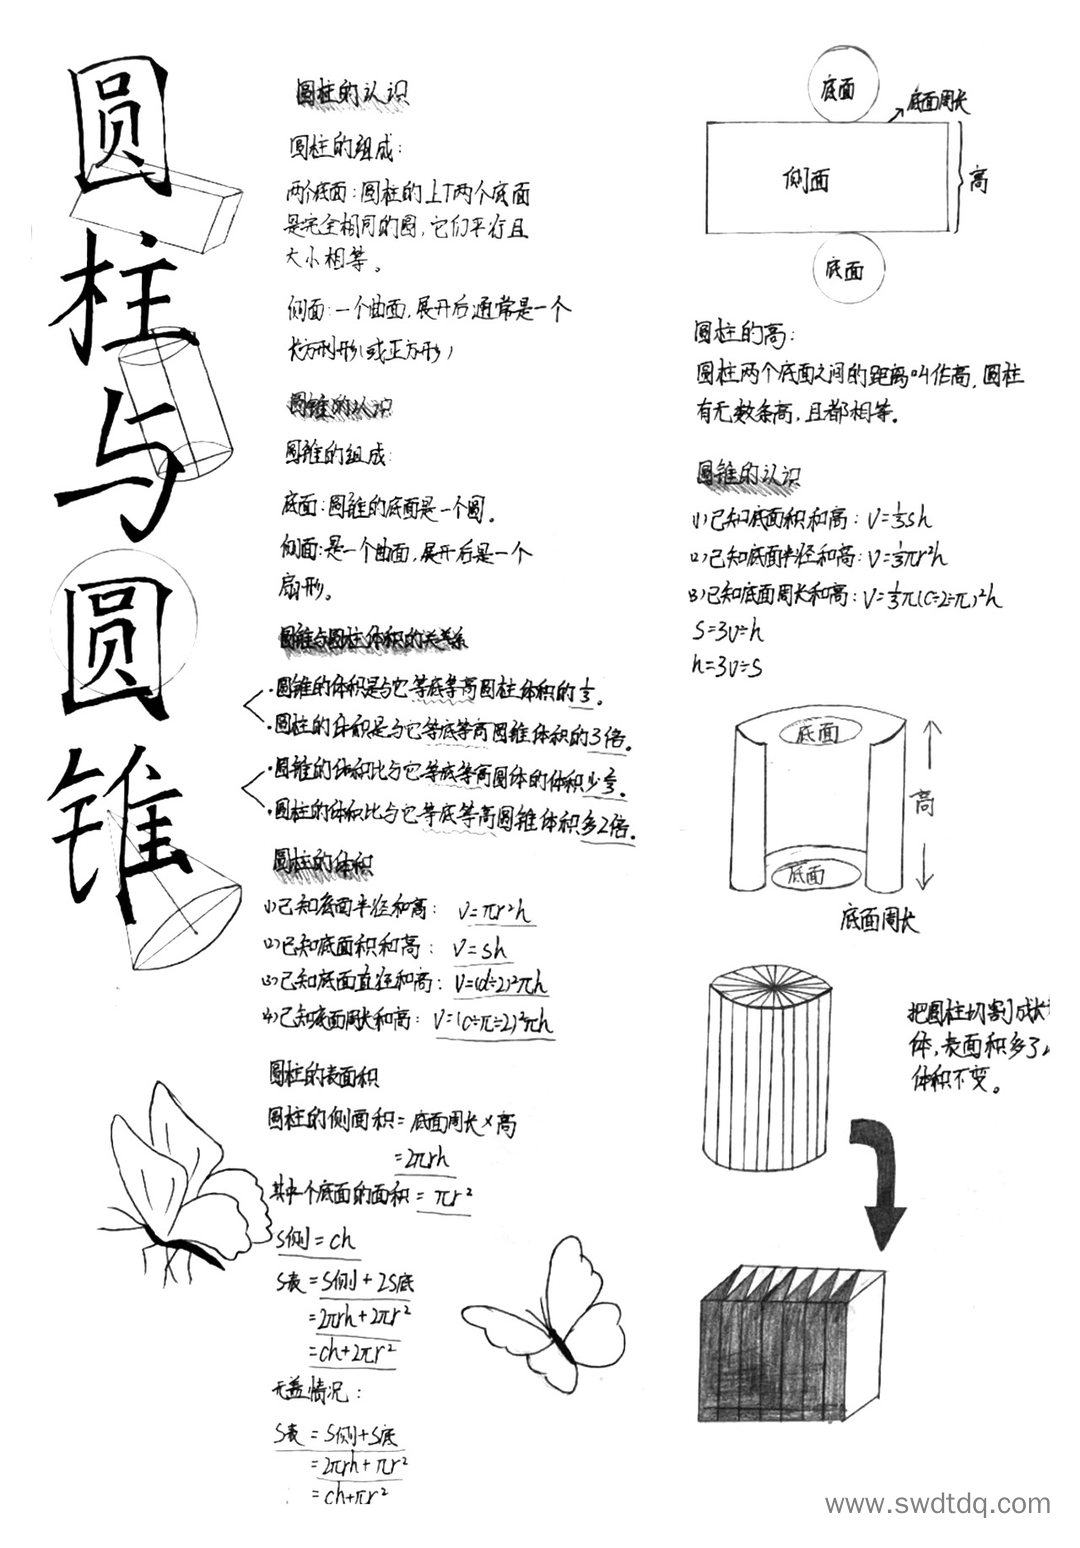 圆柱与圆锥
圆柱的认识
圆柱的组成:
两个底面:圆柱的上下两个底面
是完全相同的圆,它们平行且
大小相等。
侧面:一个曲面,展开后通常是一个
长方形(或正方形)
圆锥的认识
圆锥的组成:
底面:圆锥的底面是一个圆。
侧面:是一个曲面,展开后是一个
扇形。
圆锥与圆柱体积的关系
·圆锥的体积是与它等底等高圆柱体积的⅓。
·圆柱的体积是与它等底等高圆锥体积的3倍。
·圆锥的体积比与它等底等高圆体的体积少⅔。
·圆柱的体积比与它等底等高圆锥体积多2倍。
圆柱的体积
(1)已知底面半径和高: V=πr²h
(2)已知底面积和高: V=sh
(3)已知底面直径和高: V=(d÷2)²πh
(4)已知底面周长和高: V=(c÷π÷2)²πh
圆柱的表面积
圆柱的侧面积=底面周长×高
=2πrh
其中个底面的面积=πr²
S侧=ch
S表=S侧+2S底
=2πrh+2πr²
=ch+2πr²
无盖情况:
S表=S侧+S底
=2πrh+πr²
=ch+πr²
底面
底面周长
侧面
高
底面
圆柱的高:
圆柱两个底面之间的距离叫作高,圆柱
有无数条高,且都相等。
圆锥的认识
(1)已知底面积和高: V=⅓sh
(2)已知底面半径和高: V=⅓πr²h
(3)已知底面周长和高: V=⅓π(c÷2÷π)²h
S=3V÷h
h=3V÷S
底面
高
底面
底面周长
把圆柱切割成长
体,表面积多了
体积不变。
www.swdtdq.com